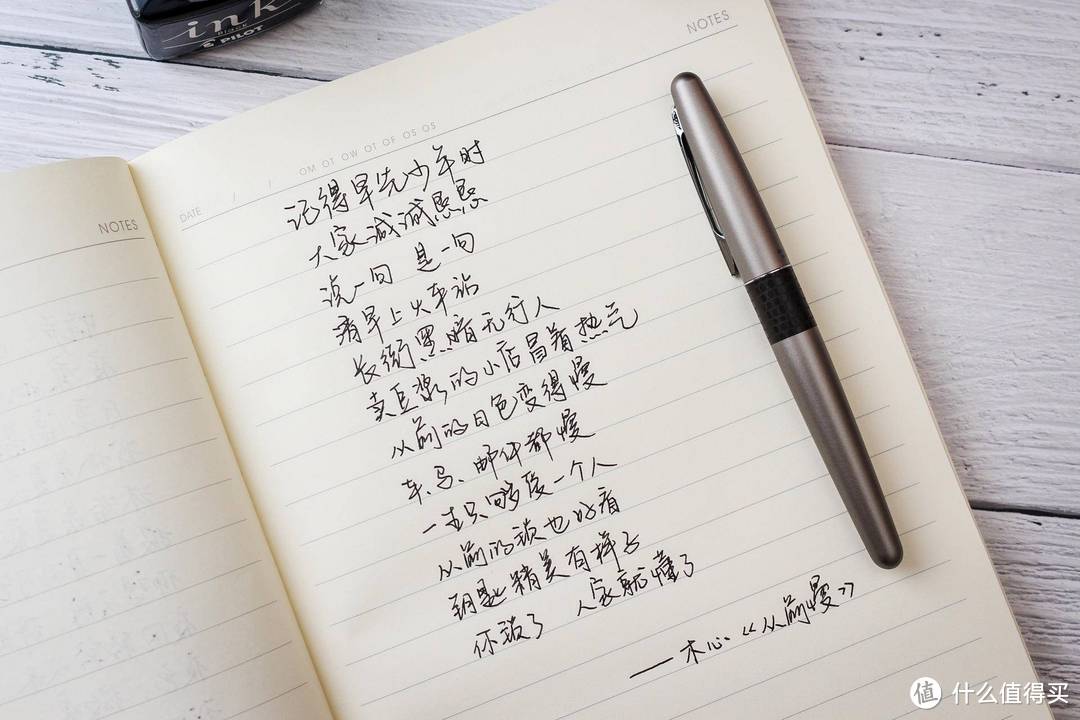 ink
Black
PILOT
NOTES
OM OT OW OT OF OS OS
DATE / /
NOTES
记得早先少年时
大家诚诚恳恳
说一句 是一句
清早上火车站
长街黑暗无行人
卖豆浆的小店冒着热气
从前的日色变得慢
车、马、邮件都慢
一生只够爱一个人
从前的锁也好看
钥匙精美有样子
你锁了 人家就懂了
——木心《从前慢》
值 什么值得买